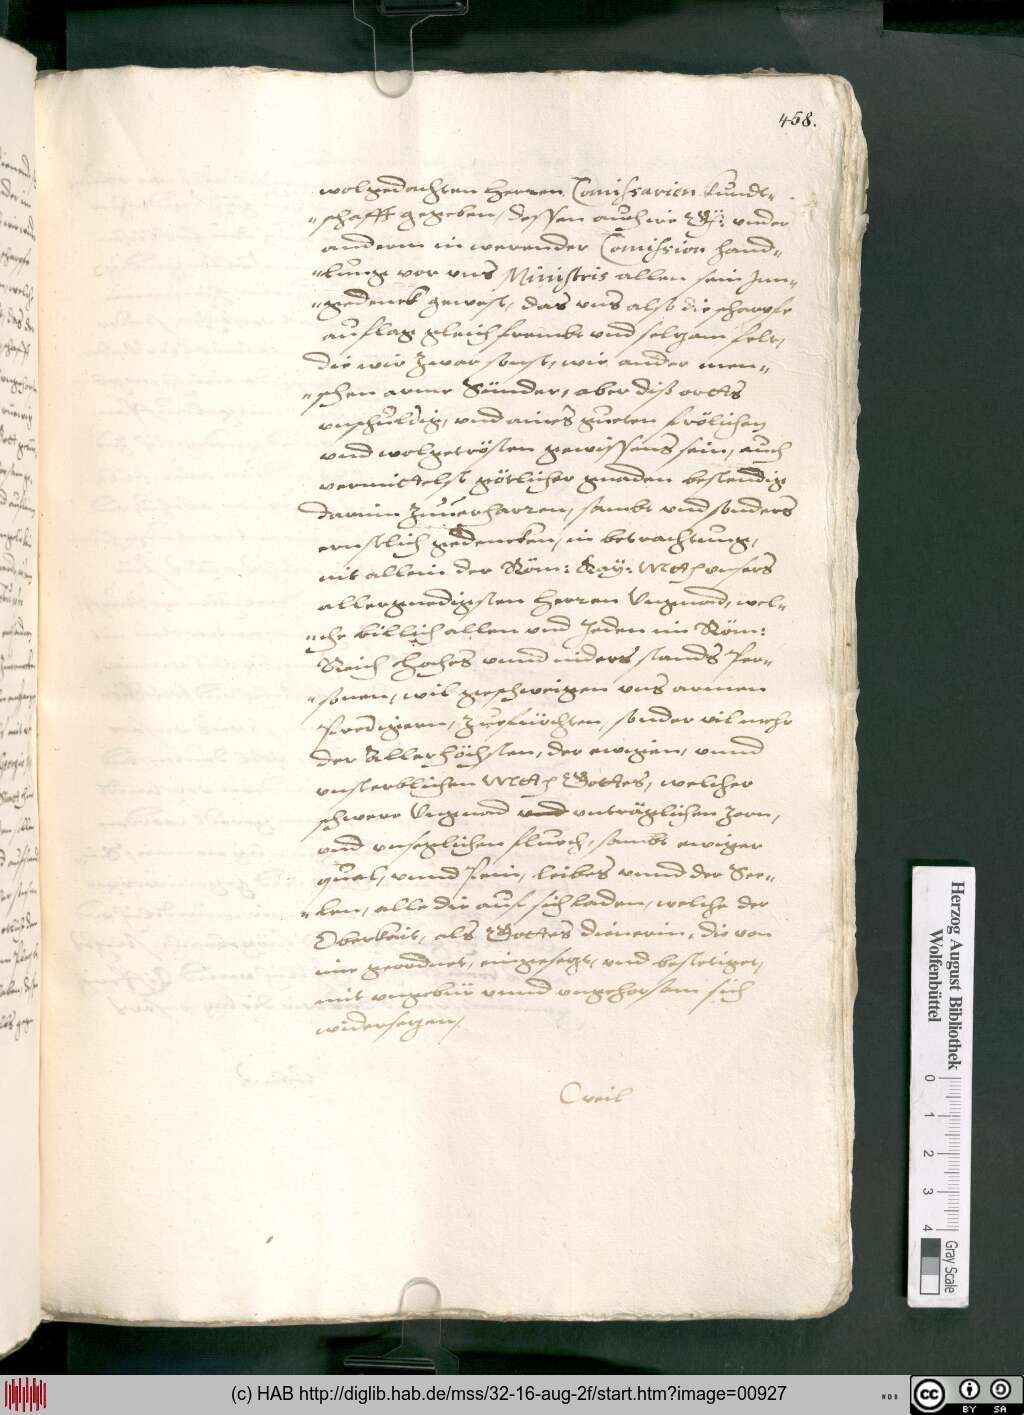 458.
wolgedachten Herren Comissarien kundt-
-schafft gegeben, dessen auch wie E. G: under
anderm in werender Comission hand-
-lung vor uns Ministris allen sein Inn-
-gedenck gewest, das uns also die scharpfe
auflag gleich frembt und selzam felt,
die wir zwar sonst, wie ander men-
-schen arme Sünder, aber diß orttes
unschuldig, und aines gueten frölichen
und wolgetrösten gewissens sein, auch
vermittelst götlicher gnaden bestendig
darinn zuuerharren, sambt und sonders
ernstlich gedencken, in betrachtung,
nit allein der Röm: Kay: Mtt. unsers
allergnedigsten Herren Ungnad, wel-
-che billich allen und Jeden im Röm:
Reich hoches unnd niders stands Per-
-sonen, wil geschweigen uns armen
Predigern, zuefürchten, sonder vil mehr
der Allerhöchsten, der ewigen, unnd
unsterblichen Mtt. Gottes, welcher
schwere Ungnad und unträglichen zorn,
und unseglichen fluech, sambt ewiger
qual, unnd Pein, leibes unnd der See-
-len, alle die auf sich laden, welche der
Oberkait, als Gottes dienerin, die von
ime geordnet, eingesezt, und bestetiget,
mit ungebür unnd ungehorsam sich
widersezen,
weil
Herzog August Bibliothek
Wolfenbüttel
0 1 2 3 4
Gray Scale
(c) HAB http://diglib.hab.de/mss/32-16-aug-2f/start.htm?image=00927
WDB
cc BY SA